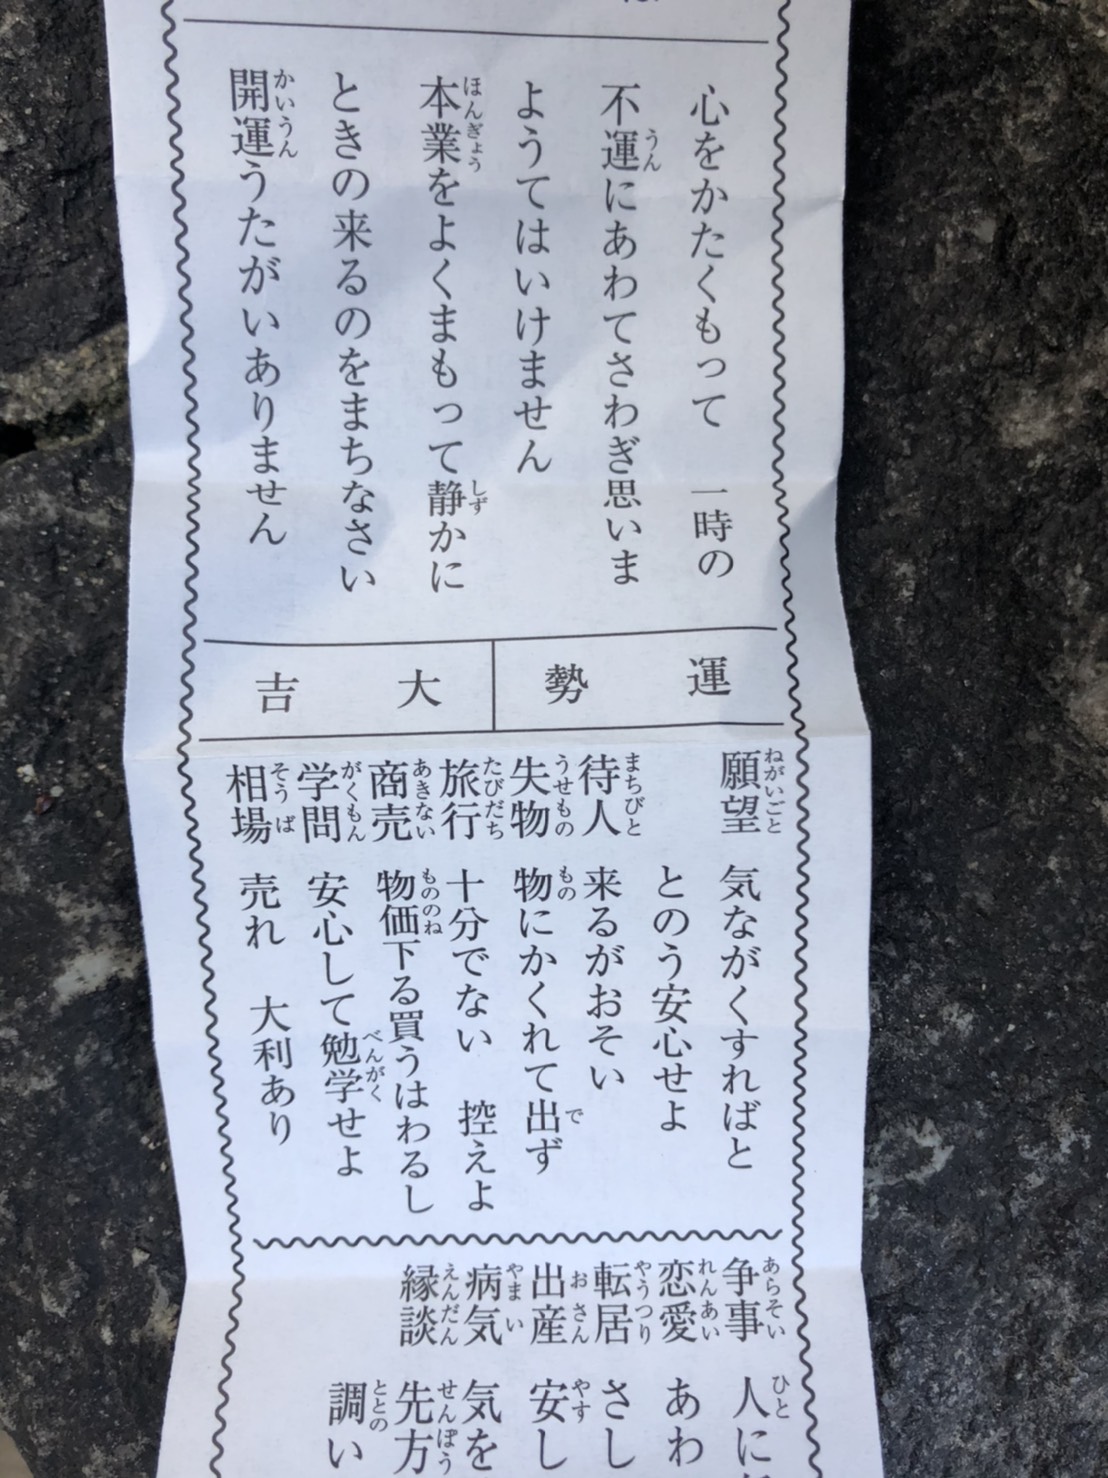 心をかたくもって 一時の
不運にあわてさわぎ思いま
ようてはいけません
本業をよくまもって静かに
ときの来るのをまちなさい
開運うたがいありません
運勢 大吉
願望 気ながくすればと
とのう安心せよ
待人 来るがおそい
失物 物にかくれて出ず
旅行 十分でない 控えよ
商売 物価下る買うはわるし
学問 安心して勉学せよ
相場 売れ 大利あり
争事 人に
恋愛 あわ
転居 さし
出産 安し
病気 気を
縁談 先方
調い